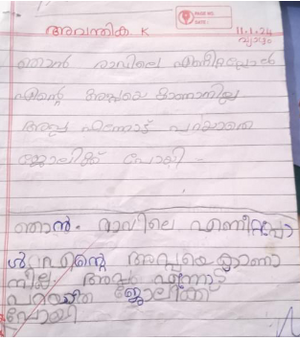 PAGE NO.
DATE:
അവന്തിക. K
11.1.24
വ്യാഴം
ഞാൻ രാവിലെ എണീറ്റപ്പോൽ
എന്റെ അപ്പയെ കാണാനില്ല
അപ്പ എന്നോട് പറയാതെ
ജോലിക്ക് പോയി
ഞാൻ. രാവിലെ എണീറ്റപ്പോ
ൾ എന്റെ അപ്പയെ കാണാ
നില്ല. അപ്പ എന്നോട്
പറയാതെ ജോലിക്ക്
പോയി